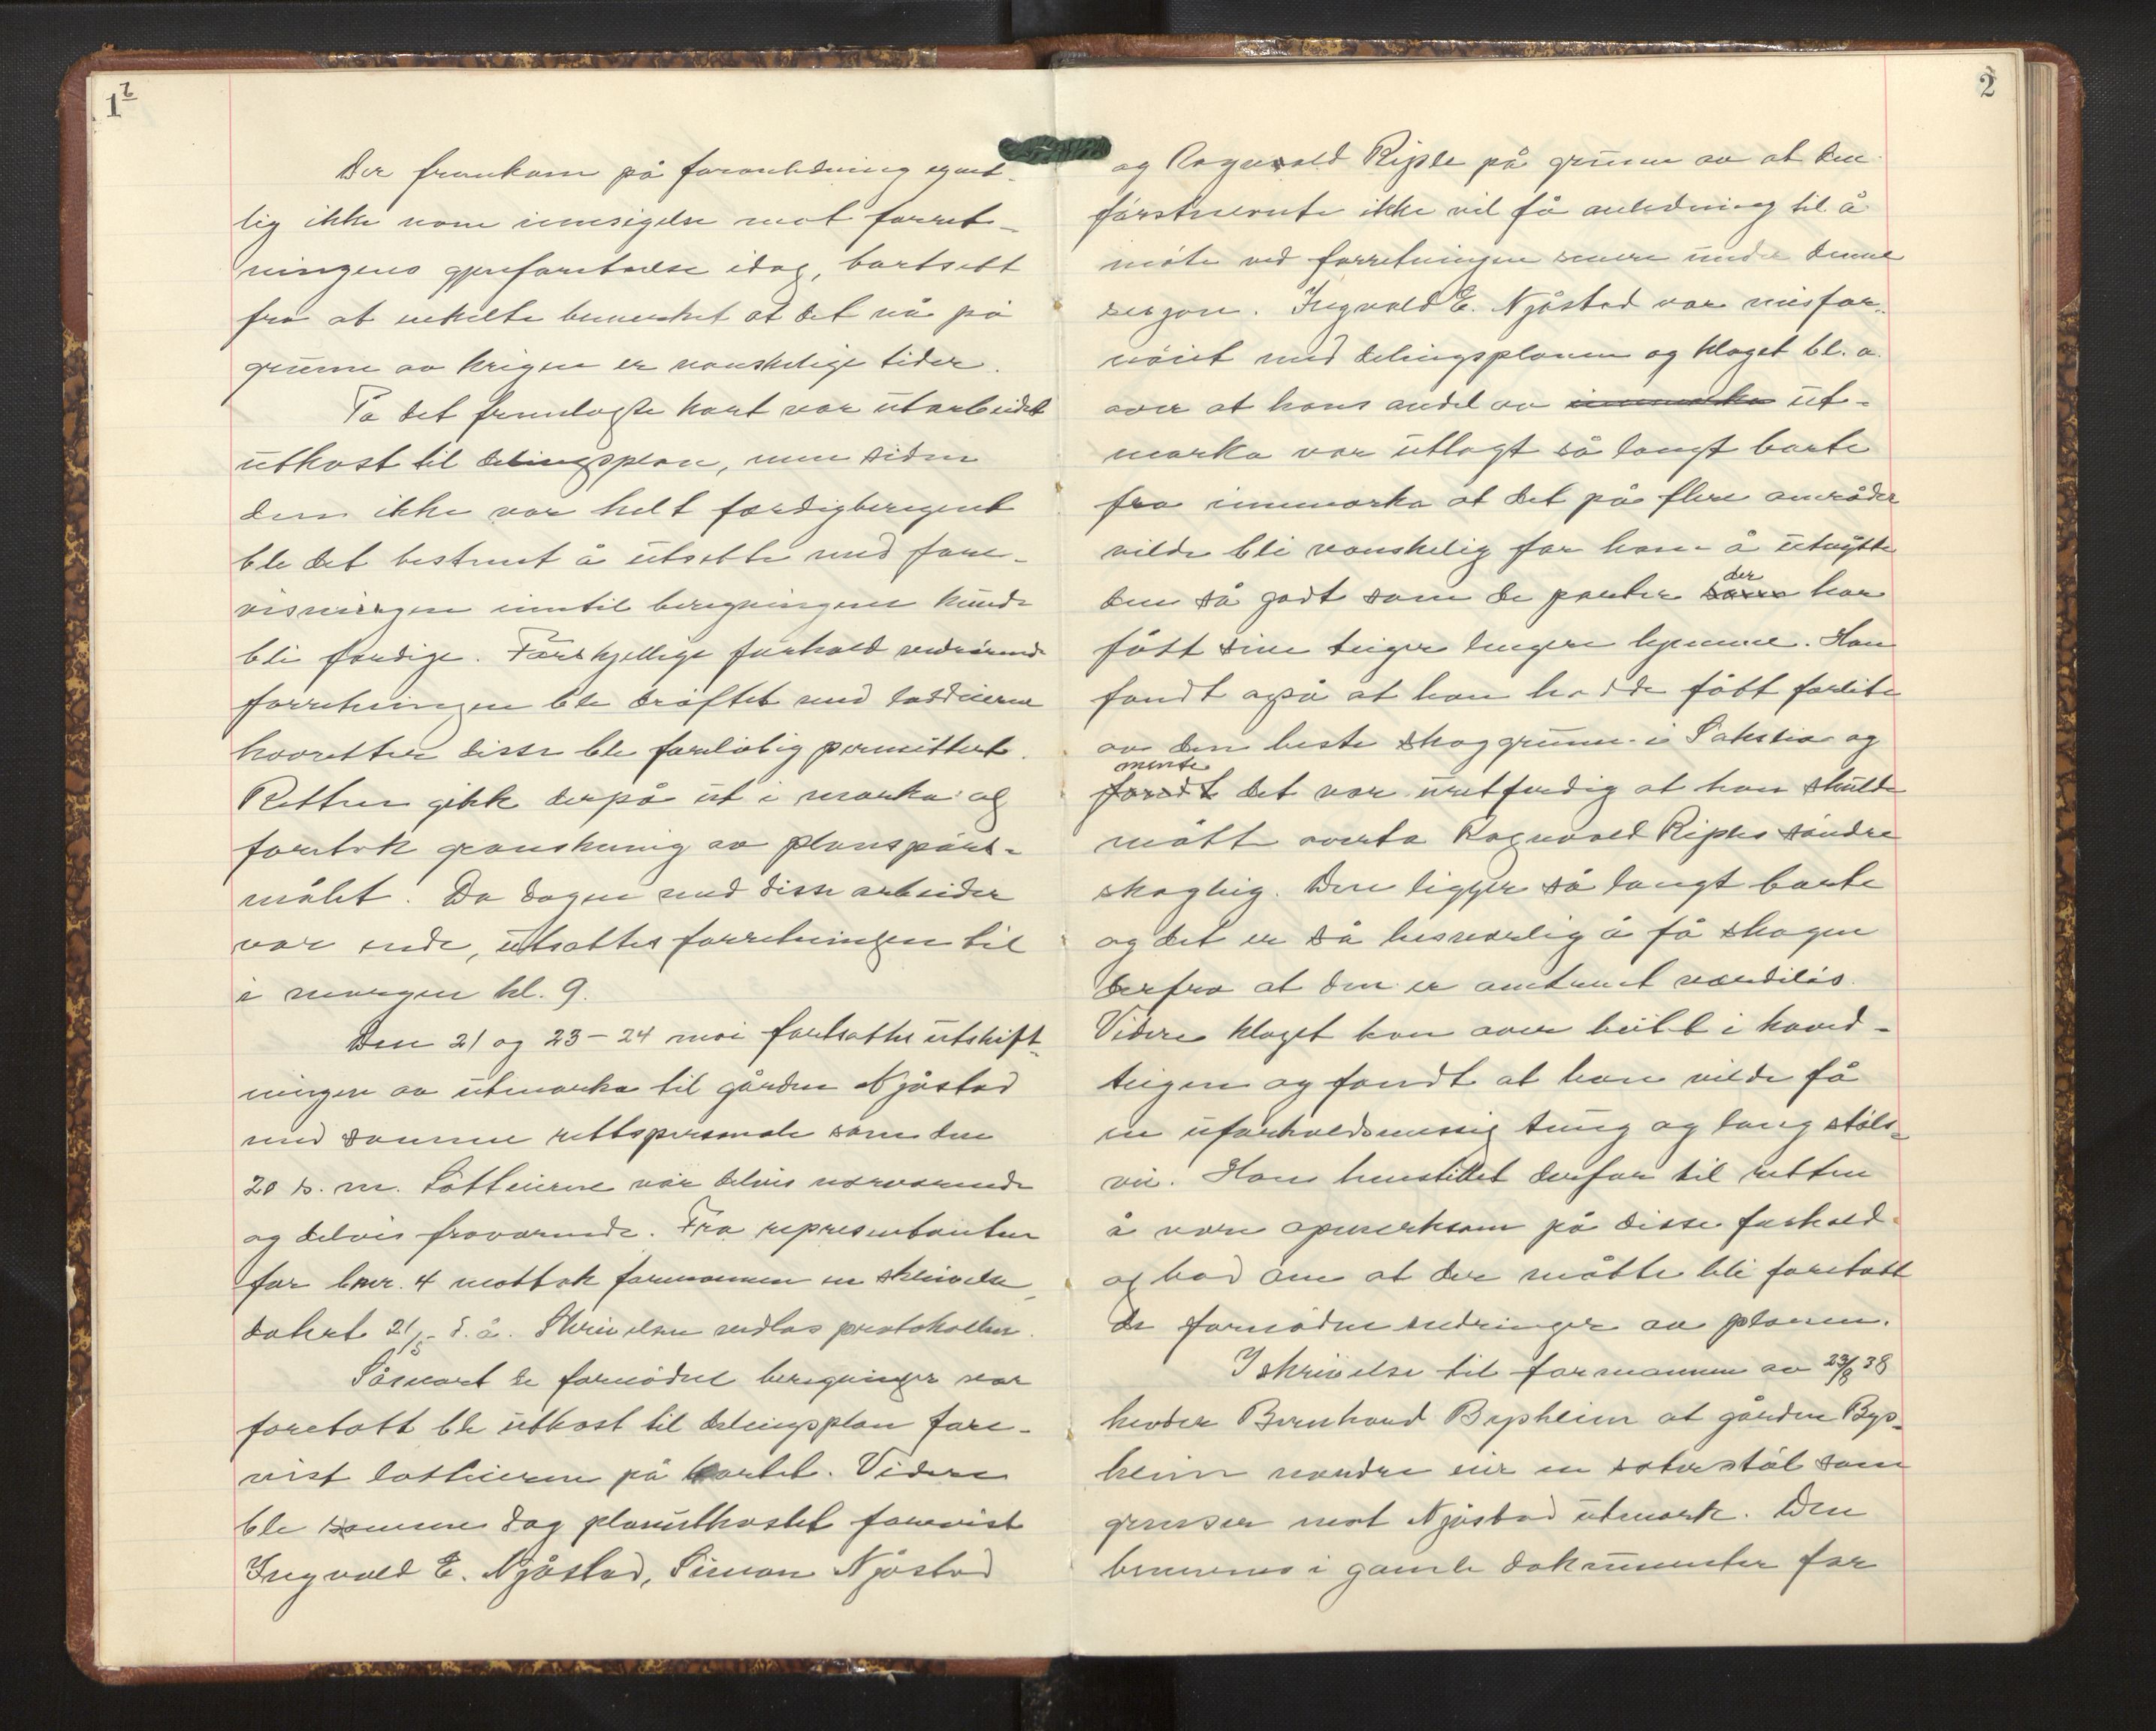 1b
Der fremkom på foranledning egent-
lig ikke noen innsigelse mot forret-
ningens gjenforetagelse idag, bortsett
fra at enkelte bemerket at det nå på
grunn av krigen er vanskelige tider.
På det fremlagte kart var utarbeidet
utkast til delingsplan, men siden
den ikke var helt ferdigberegnet
ble det bestemt å utsette med fore-
visningen inntil beregningene kunde
bli ferdige. Forskjellige forhold vedrørende
forretningen ble drøftet med loddeierne
hvoretter disse ble foreløbig permittert.
Retten gikk derpå ut i marka og
foretok granskning av planspørs-
målet. Da dagen med disse arbeider
var endt, utsattes forretningen til
i morgen kl. 9.
Den 21 og 23-24 mai fortsattes utskift-
ningen av utmarka til gården Njåstad
med samme rettspersonale som den
20 s. m. Lotteierne var delvis nærværende
og delvis fraværende. Fra representanten
for bnr. 4 mottok formannen en skrivelse,
datert 21/5 d.å. Skrivelsen vedlas protokollen.
Såsnart de fornødne beregninger var
foretatt ble utkast til delingsplan fore-
vist lotteierne på kartet. Videre
ble samme dag planutkastet forevist
Ingvald E. Njåstad, Simon Njåstad
2
og Ragnvald Riple på grunn av at den
førstnevnte ikke vil få anledning til å
møte ved forretningen senere under denne
sesjon. Ingvald E. Njåstad var misfor-
nøiet med delingsplanen og klaget bl. a.
over at hans andel av innmarka ut-
marka var utlagt så langt borte
fra innmarka at det på flere områder
vilde bli vanskelig for ham å utnytte
den så godt som de parter som der har
fått sine teiger lengere hjemme. Han
fandt også at han hadde fått forlite
av den beste skoggrunn i Sakslia og
fandt mente det var uretferdig at han skulde
måtte overta Ragnvald Riples søndre
skogteig. Den ligger så langt borte
og det er så besværlig å få skogen
derfra at den er omtrent verdiløs.
Videre klaget han over beitet i hoved-
teigen og fandt at han vilde få
en uforholdsmessig tung og lang støls-
vei. Han henstillet derfor til retten
å være opmerksom på disse forhold
og bad om at der måtte bli foretatt
de fornødne endringer av planen.
I skrivelse til formannen av 23/8 38
hevder Bernhard Brypheim at gården Bryp-
heim nordre eier en sæterstøl som
grenser mot Njåstad utmark. Den
benevnes i gamle dokumenter for